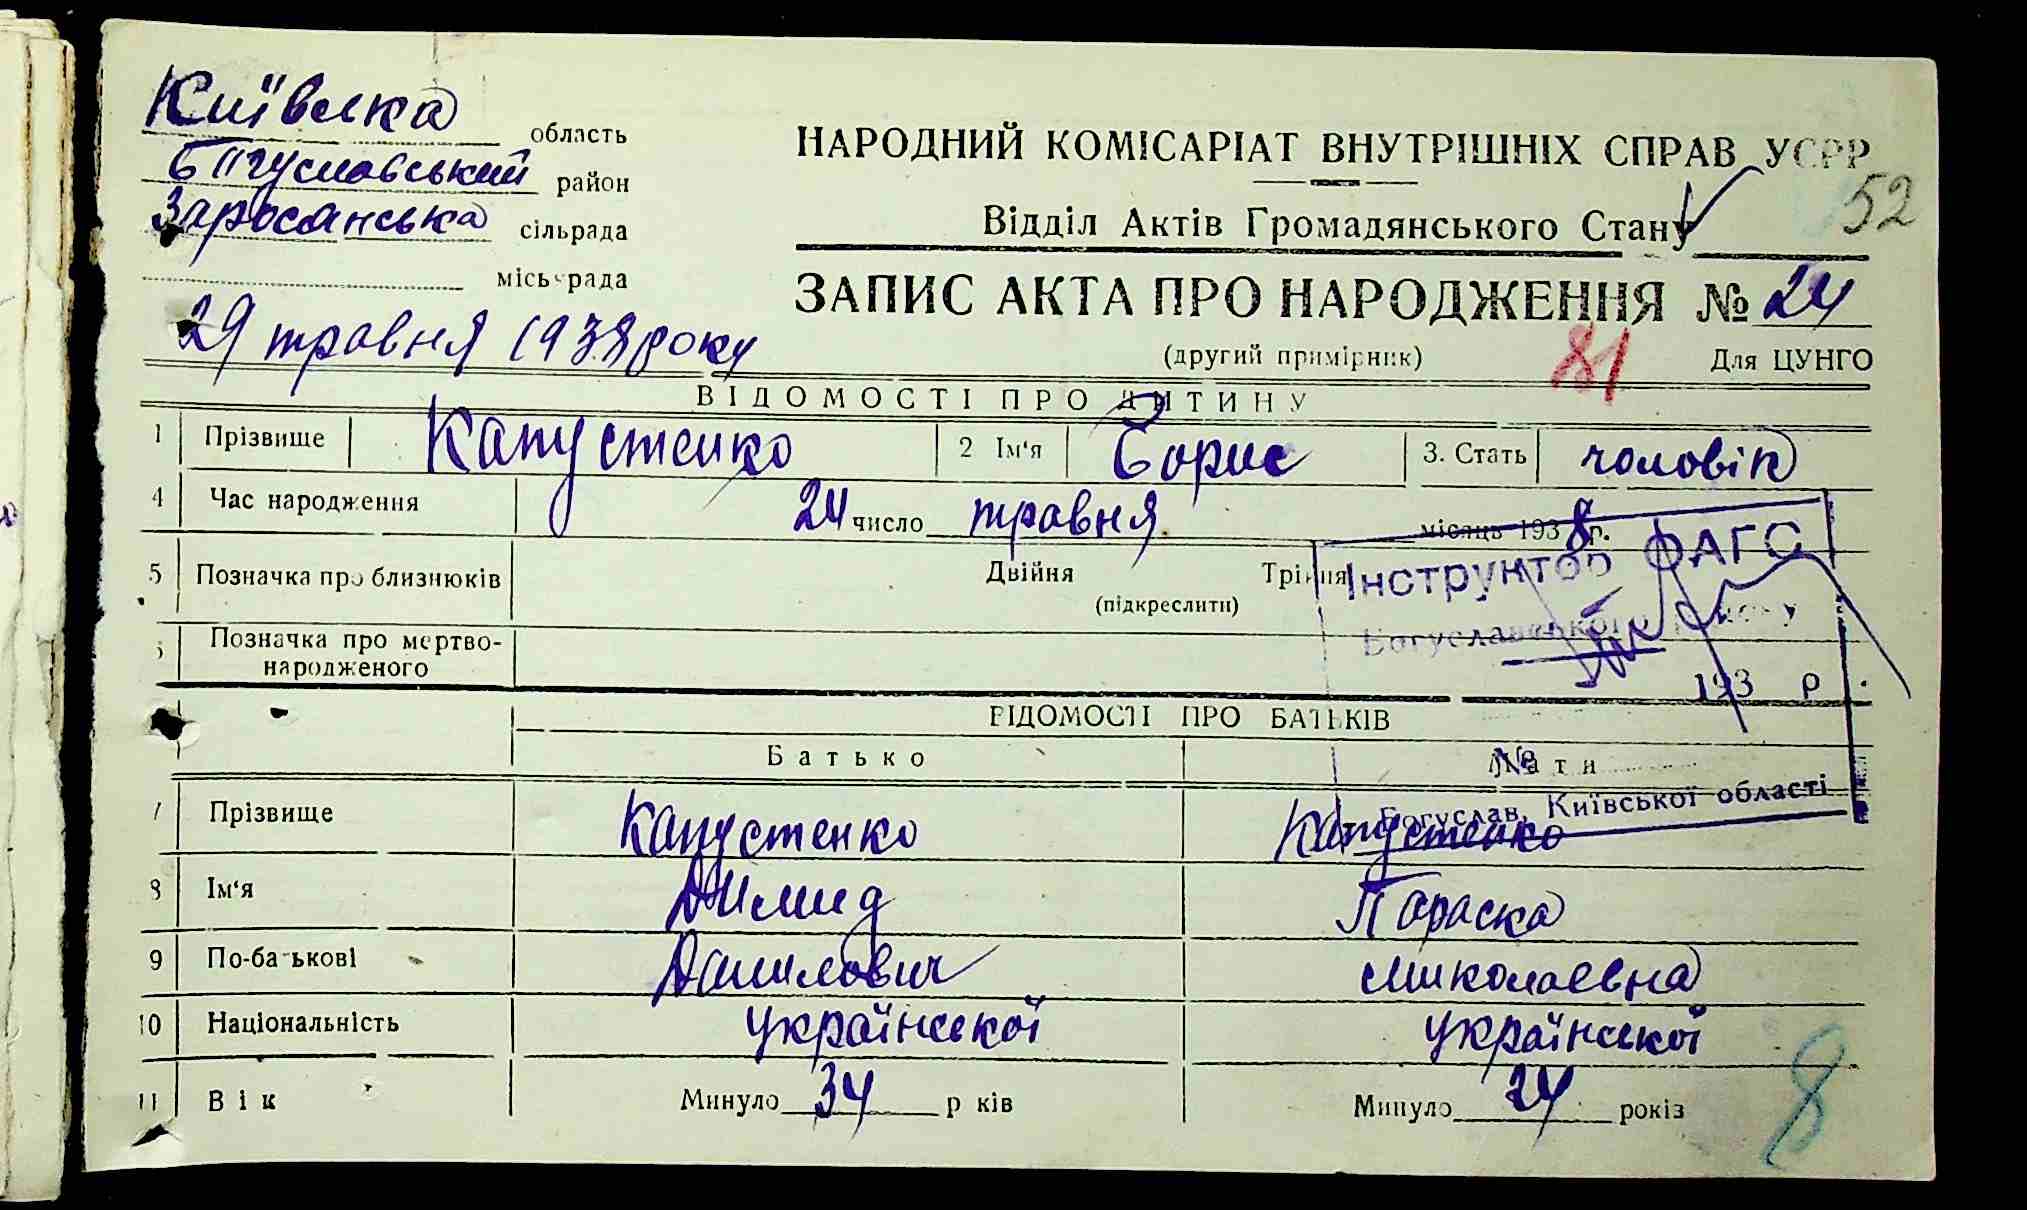 Київська область
Богуславський район
Заросянська сільрада
міськрада
НАРОДНИЙ КОМІСАРІАТ ВНУТРІШНІХ СПРАВ УСРР
52
Відділ Актів Громадянського Стану
ЗАПИС АКТА ПРО НАРОДЖЕННЯ № 24
29 травня 1938 року
(другий примірник) 81 Для ЦУНГО
ВІДОМОСТІ ПРО ДИТИНУ
1 Прізвище Капустенко 2 Ім'я Борис 3. Стать чоловік
4 Час народження 24 число травня місяць 1938 г.
5 Позначка про близнюків Двійня Трійня
(підкреслити)
Інструктор ФАГС
Богуславського району
6 Позначка про мертво-
народженого
193 р.
ВІДОМОСТІ ПРО БАТЬКІВ
Батько Мати
№
м. Богуслав, Київської області
7 Прізвище Капустенко Капустенко
8 Ім'я Димид Параска
9 По-батькові Данилович Миколаевна
10 Національність української української
11 Вік Минуло 34 років Минуло 24 років
8